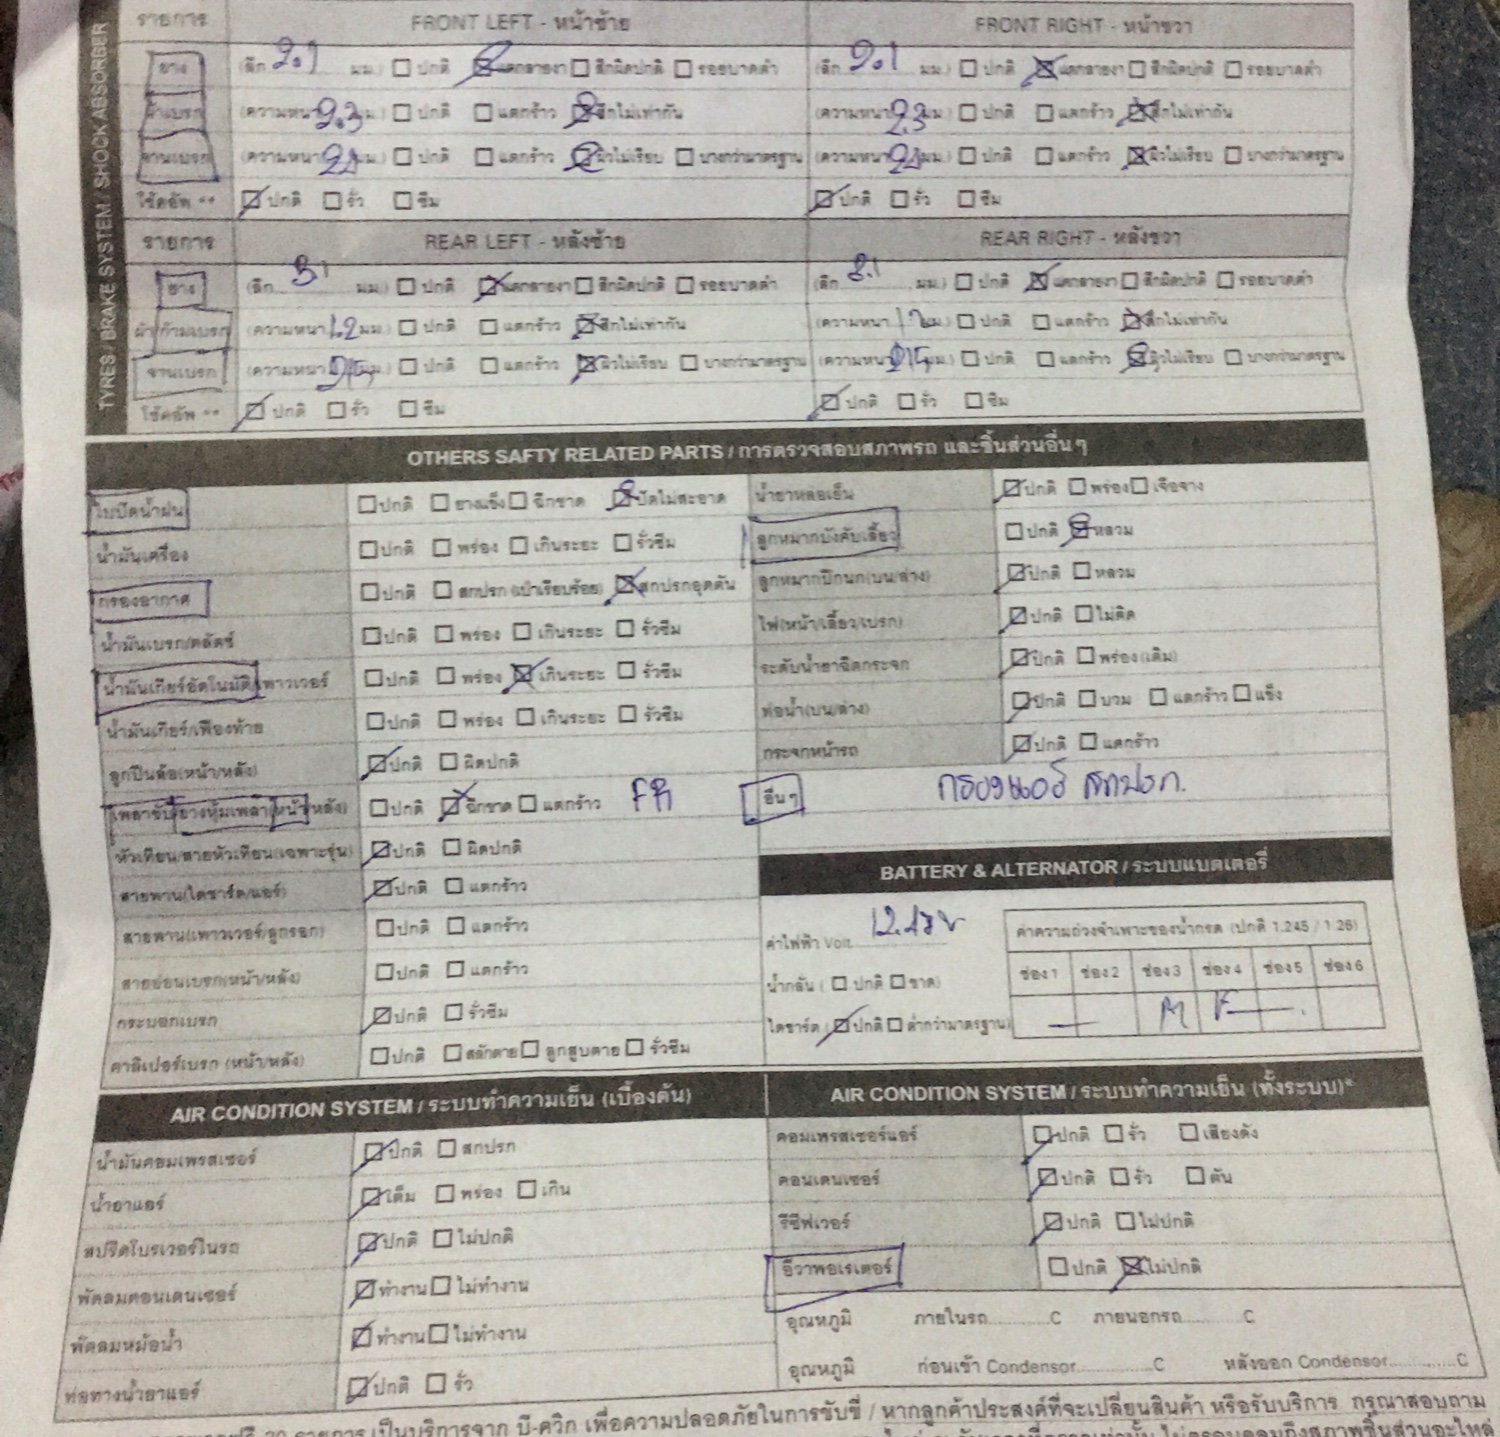 TYRES / BRAKE SYSTEM / SHOCK ABSORBER
รายการ FRONT LEFT - หน้าซ้าย FRONT RIGHT - หน้าขวา
ยาง (ลึก 2.1 มม.) ปกติ แตกลายงา สึกผิดปกติ รอยบาดตำ (ลึก 2.1 มม.) ปกติ แตกลายงา สึกผิดปกติ รอยบาดตำ
ผ้าเบรก (ความหนา 2.3 มม.) ปกติ แตกร้าว สึกไม่เท่ากัน (ความหนา 2.3 มม.) ปกติ แตกร้าว สึกไม่เท่ากัน
จานเบรก (ความหนา มม.) ปกติ แตกร้าว ผิวไม่เรียบ บางกว่ามาตรฐาน (ความหนา มม.) ปกติ แตกร้าว ผิวไม่เรียบ บางกว่ามาตรฐาน
โช้คอัพ ** ปกติ รั่ว ซึม ปกติ รั่ว ซึม
รายการ REAR LEFT - หลังซ้าย REAR RIGHT - หลังขวา
ยาง (ลึก 3.1 มม.) ปกติ แตกลายงา สึกผิดปกติ รอยบาดตำ (ลึก 3.1 มม.) ปกติ แตกลายงา สึกผิดปกติ รอยบาดตำ
ผ้า/ก้ามเบรก (ความหนา 1.2 มม.) ปกติ แตกร้าว สึกไม่เท่ากัน (ความหนา 1.2 มม.) ปกติ แตกร้าว สึกไม่เท่ากัน
จานเบรก (ความหนา มม.) ปกติ แตกร้าว ผิวไม่เรียบ บางกว่ามาตรฐาน (ความหนา มม.) ปกติ แตกร้าว ผิวไม่เรียบ บางกว่ามาตรฐาน
โช้คอัพ ** ปกติ รั่ว ซึม ปกติ รั่ว ซึม
OTHERS SAFTY RELATED PARTS / การตรวจสอบสภาพรถ และชิ้นส่วนอื่นๆ
ใบปัดน้ำฝน ปกติ ยางแข็ง ฉีกขาด ปัดไม่สะอาด น้ำยาหล่อเย็น ปกติ พร่อง เจือจาง
น้ำมันเครื่อง ปกติ พร่อง เกินระยะ รั่วซึม ลูกหมากบังคับเลี้ยว ปกติ หลวม
กรองอากาศ ปกติ สกปรก (เป่าเรียบร้อย) สกปรกอุดตัน ลูกหมากปีกนก(บน/ล่าง) ปกติ หลวม
น้ำมันเบรก/คลัตช์ ปกติ พร่อง เกินระยะ รั่วซึม ไฟ(หน้า/เลี้ยว/เบรก) ปกติ ไม่ติด
น้ำมันเกียร์อัตโนมัติ/เพาเวอร์ ปกติ พร่อง เกินระยะ รั่วซึม ระดับน้ำยาฉีดกระจก ปกติ พร่อง(เติม)
น้ำมันเกียร์/เฟืองท้าย ปกติ พร่อง เกินระยะ รั่วซึม ท่อน้ำ(บน/ล่าง) ปกติ บวม แตกร้าว แข็ง
ลูกปืนล้อ(หน้า/หลัง) ปกติ ผิดปกติ กระจกหน้ารถ ปกติ แตกร้าว
เพลาขับ/ยางหุ้มเพลา(หน้า/หลัง) ปกติ ฉีกขาด แตกร้าว FR อื่นๆ กรองแอร์ สกปรก.
หัวเทียน/สายหัวเทียน(เฉพาะรุ่น) ปกติ ผิดปกติ
สายพาน(ไดชาร์ด/แอร์) ปกติ แตกร้าว BATTERY & ALTERNATOR / ระบบแบตเตอรี่
สายพาน(เพาเวอร์/ลูกรอก) ปกติ แตกร้าว ค่าไฟฟ้า Volt ค่าความถ่วงจำเพาะของน้ำกรด (ปกติ 1.245 / 1.26)
สายอ่อนเบรก(หน้า/หลัง) ปกติ แตกร้าว น้ำกลั่น ( ปกติ ขาด) ช่อง 1 ช่อง 2 ช่อง 3 ช่อง 4 ช่อง 5 ช่อง 6
กระบอกเบรก ปกติ รั่วซึม ไดชาร์ด ( ปกติ ต่ำกว่ามาตรฐาน) M F
คาลิเปอร์เบรก (หน้า/หลัง) ปกติ สลักตาย ลูกสูบตาย รั่วซึม
AIR CONDITION SYSTEM / ระบบทำความเย็น (เบื้องต้น) AIR CONDITION SYSTEM / ระบบทำความเย็น (ทั้งระบบ)*
น้ำมันคอมเพรสเซอร์ ปกติ สกปรก คอมเพรสเซอร์แอร์ ปกติ รั่ว เสียงดัง
น้ำยาแอร์ เต็ม พร่อง เกิน คอนเดนเซอร์ ปกติ รั่ว ตัน
สปรีดโบรเวอร์ในรถ ปกติ ไม่ปกติ รีซีฟเวอร์ ปกติ ไม่ปกติ
พัดลมคอนเดนเซอร์ ทำงาน ไม่ทำงาน อีวาพอเรเตอร์ ปกติ ไม่ปกติ
พัดลมหม้อน้ำ ทำงาน ไม่ทำงาน อุณหภูมิ ภายในรถ............C ภายนอกรถ............C
ท่อทางน้ำยาแอร์ ปกติ รั่ว อุณหภูมิ ก่อนเข้า Condensor............C หลังออก Condensor............C
30 รายการ เป็นบริการจาก บี-ควิก เพื่อความปลอดภัยในการขับขี่ / หากลูกค้าประสงค์ที่จะเปลี่ยนสินค้า หรือรับบริการ กรุณาสอบถาม